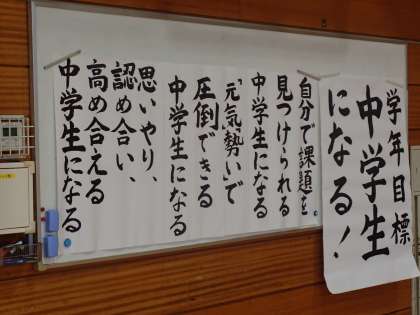 学年目標
中学生
になる!
自分で課題を
見つけられる
中学生になる
「元気、勢い」で
圧倒できる
中学生になる
思いやり、
認め合い、
高め合える
中学生になる